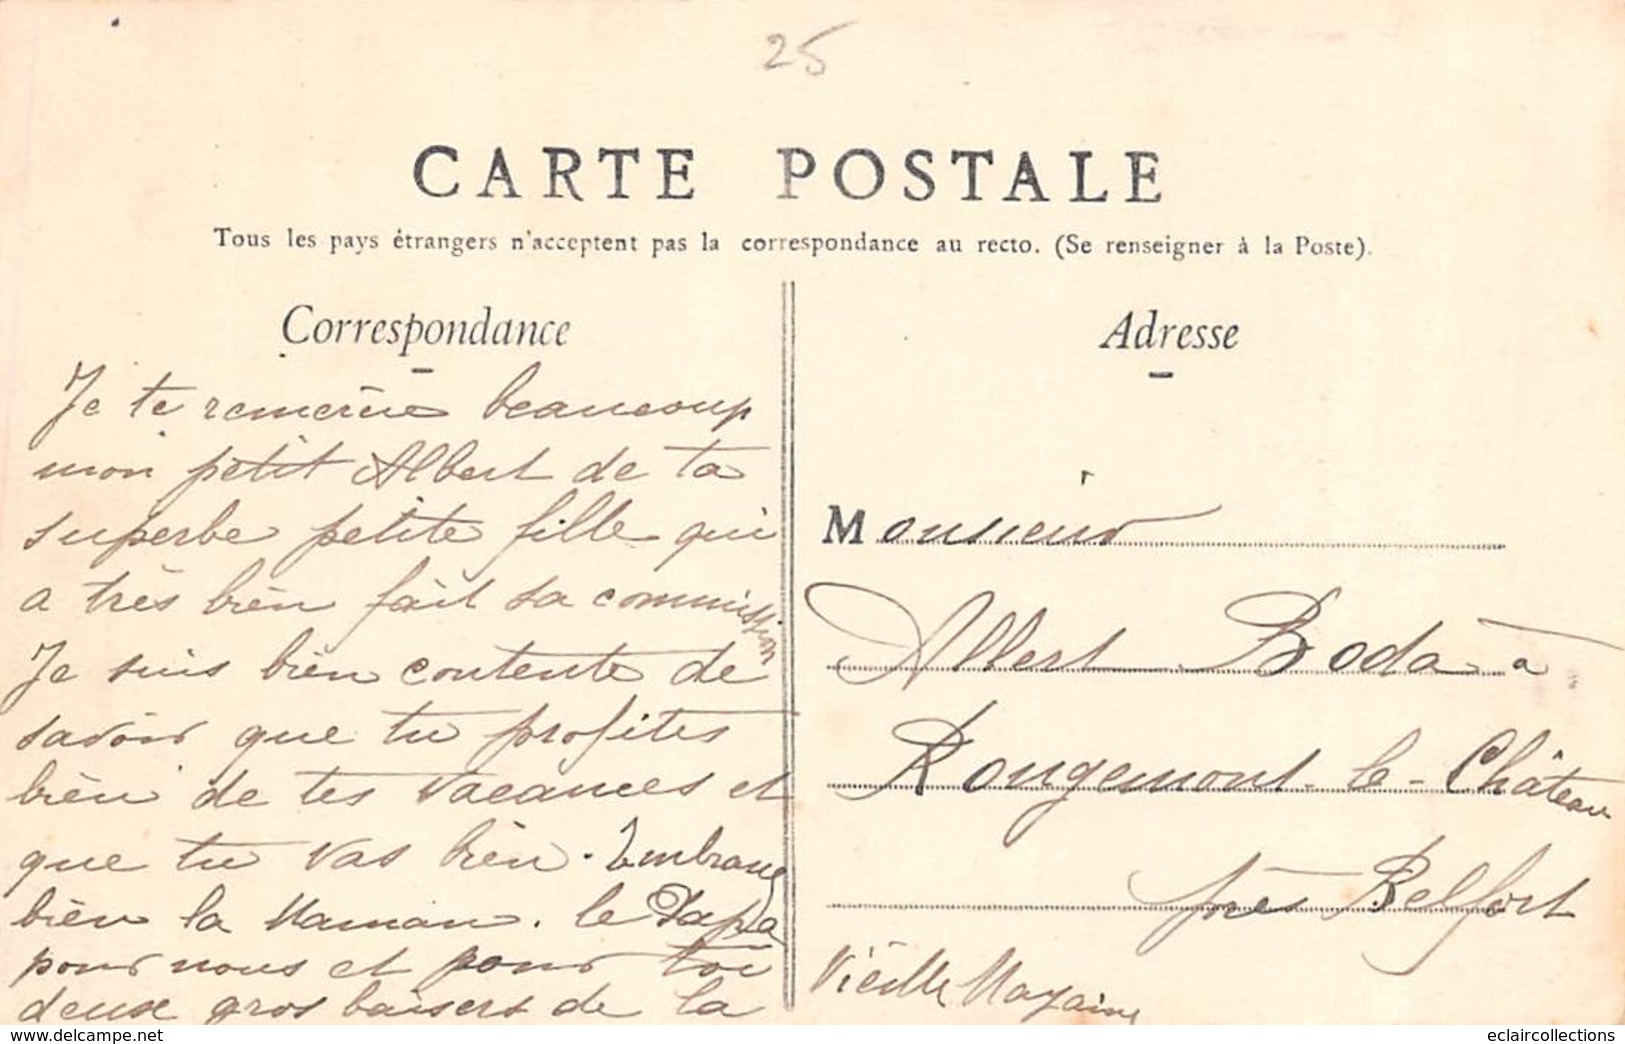 25
CARTE POSTALE
Tous les pays étrangers n'acceptent pas la correspondance au recto. (Se renseigner à la Poste).
Correspondance
Je te remercie beaucoup
mon petit Albert de ta
superbe petite fille qui
a très bien fait sa commission
Je suis bien contente de
savoir que tu profites
bien de tes vacances et
que tu vas bien. Embrasse
bien la Maman. le Papa
pour nous et pour toi
deux gros baisers de la
Vieille
Adresse
Monsieur
Albert Boda à
Rougemont-le-Château
près Belfort
eclaircollections